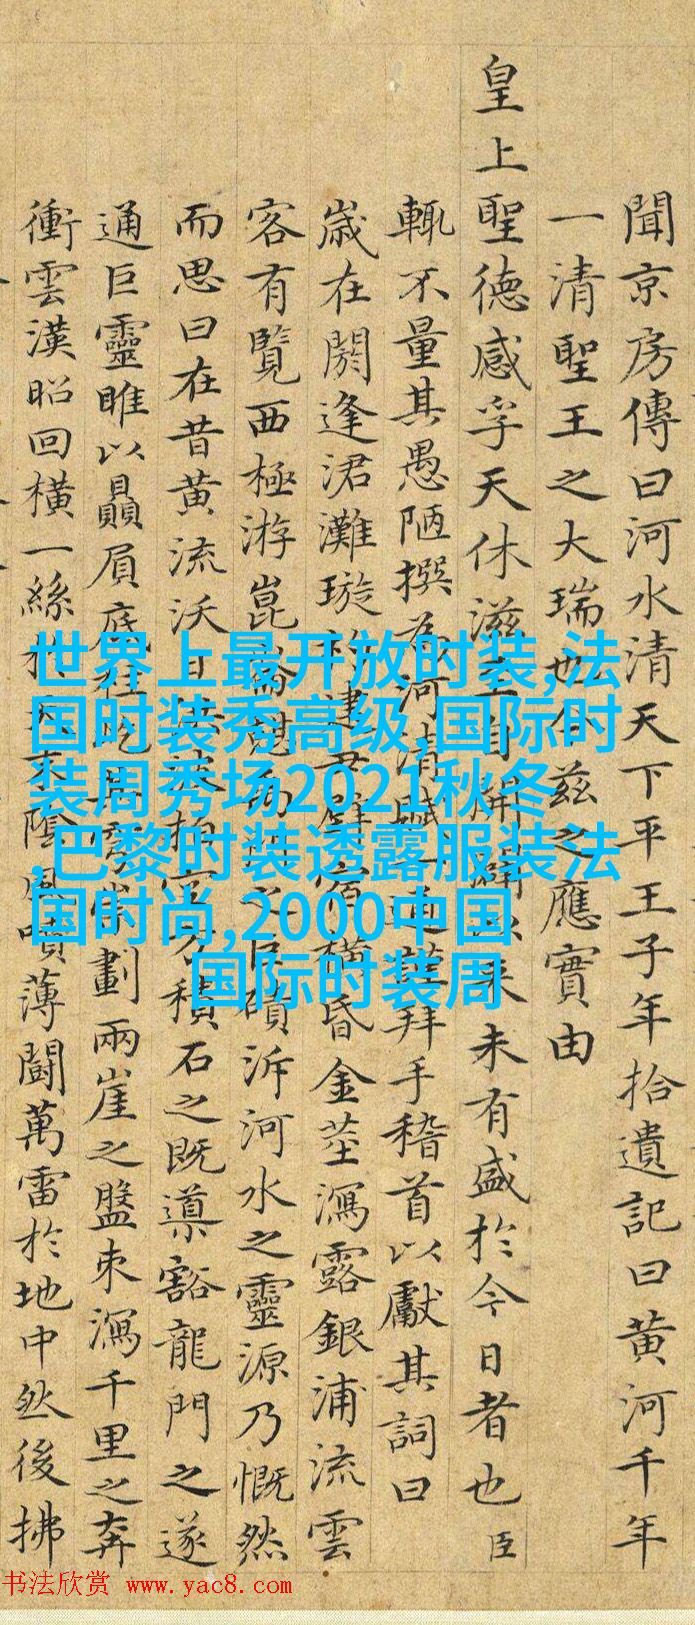 聞京房傳曰河水清天下平王子年拾遺記曰黄河千年
一清聖王之大瑞也今茲之應實由
皇上聖德感孚天休滋至自開闢以來未有盛於今日者也臣
輒不量其愚陋撰為河清賦一通拜手稽首以獻其詞曰
歳在閼逢涒灘璇建丑宿橫昏金莖瀉露銀浦流雲
客有覽西極游崑崙之石磧泝河水之靈源乃慨然
而思曰在昔黄流沃日洪波拍空方積石之既導豁龍門之遂
通巨靈睢以贔屓底柱屹崇劃兩崖之盤束瀉千里之奔
衝雲漢昭回橫一絲於天末陰風噴薄鬪萬雷於地中然後拂
世界上最开放时装,法
国时装秀高级,国际时
装周秀场2021秋冬
,巴黎时装透露服装法
国时尚,2000中国
国际时装周
书法欣赏 www.yac8.com